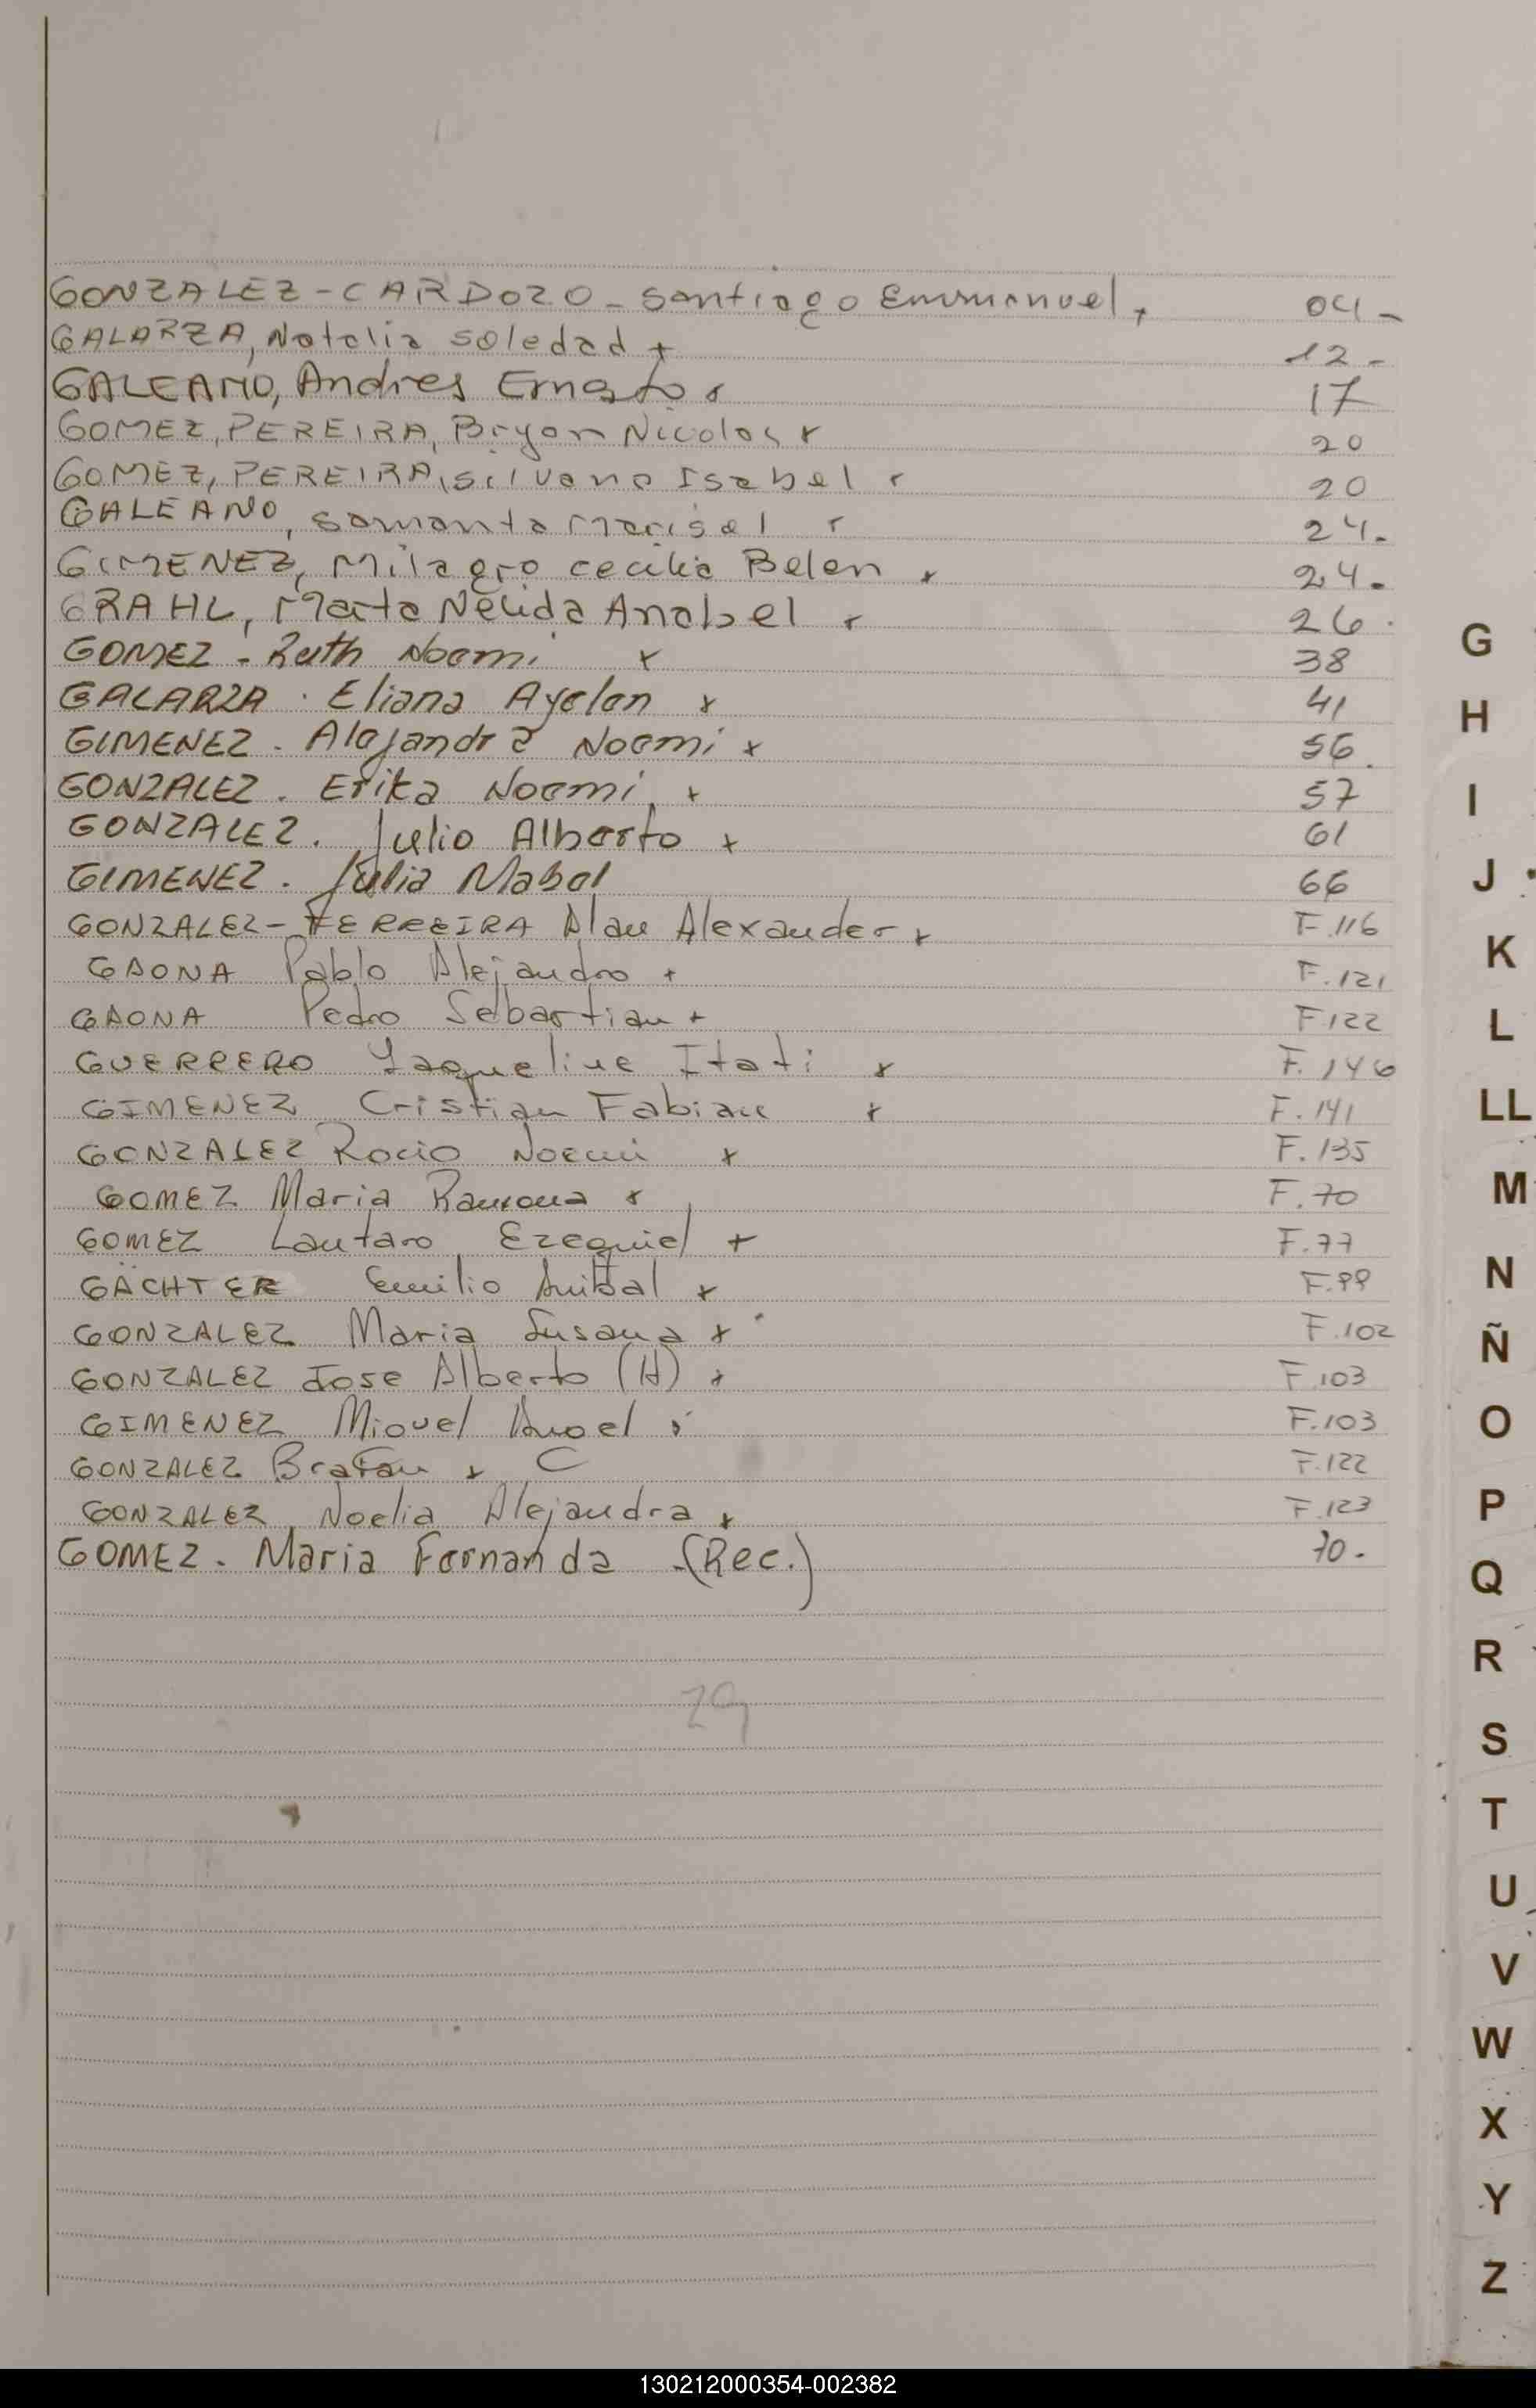 GONZALEZ - CARDOZO - Santiago Emmanuel, + 04 -
GALARZA, Natalia Soledad + 12 -
GALEANO, Andres Ernesto + 17
GOMEZ, PEREIRA, Bryan Nicolas + 20
GOMEZ, PEREIRA, Silvana Isabel + 20
GALEANO, Samanta Marisel + 24.
GIMENEZ, Milagro Cecilia Belen + 24.
GRAHL, Marta Nélida Anabel + 26.
GOMEZ - Ruth Noemi + 38
GALARZA. Eliana Ayelen + 41
GIMENEZ. Alejandra Noemi + 56.
GONZALEZ. Erika Noemi + 57
GONZALEZ. Julio Alberto + 61
GIMENEZ. Julia Mabel 66
GONZALEZ - FERREIRA Alan Alexander + F.116
GAONA Pablo Alejandro + F.121
GAONA Pedro Sebastian + F122
GUERRERO Yaqueline Itati + F.146
GIMENEZ Cristian Fabian + F.141
GONZALEZ Rocio Noemi + F.135
GOMEZ Maria Ramona + F.70
GOMEZ Lautaro Ezequiel + F.77
GÄCHTER Emilio Anibal + F.99
GONZALEZ Maria Susana + F.102
GONZALEZ Jose Alberto (H) + F.103
GIMENEZ Miguel Angel + F.103
GONZALEZ Braian + C F.122
GONZALEZ Noelia Alejandra + F.123
GOMEZ. Maria Fernanda (Rec.) 70.
29
G
H
I
J
K
L
LL
M
N
Ñ
O
P
Q
R
S
T
U
V
W
X
Y
Z
130212000354-002382